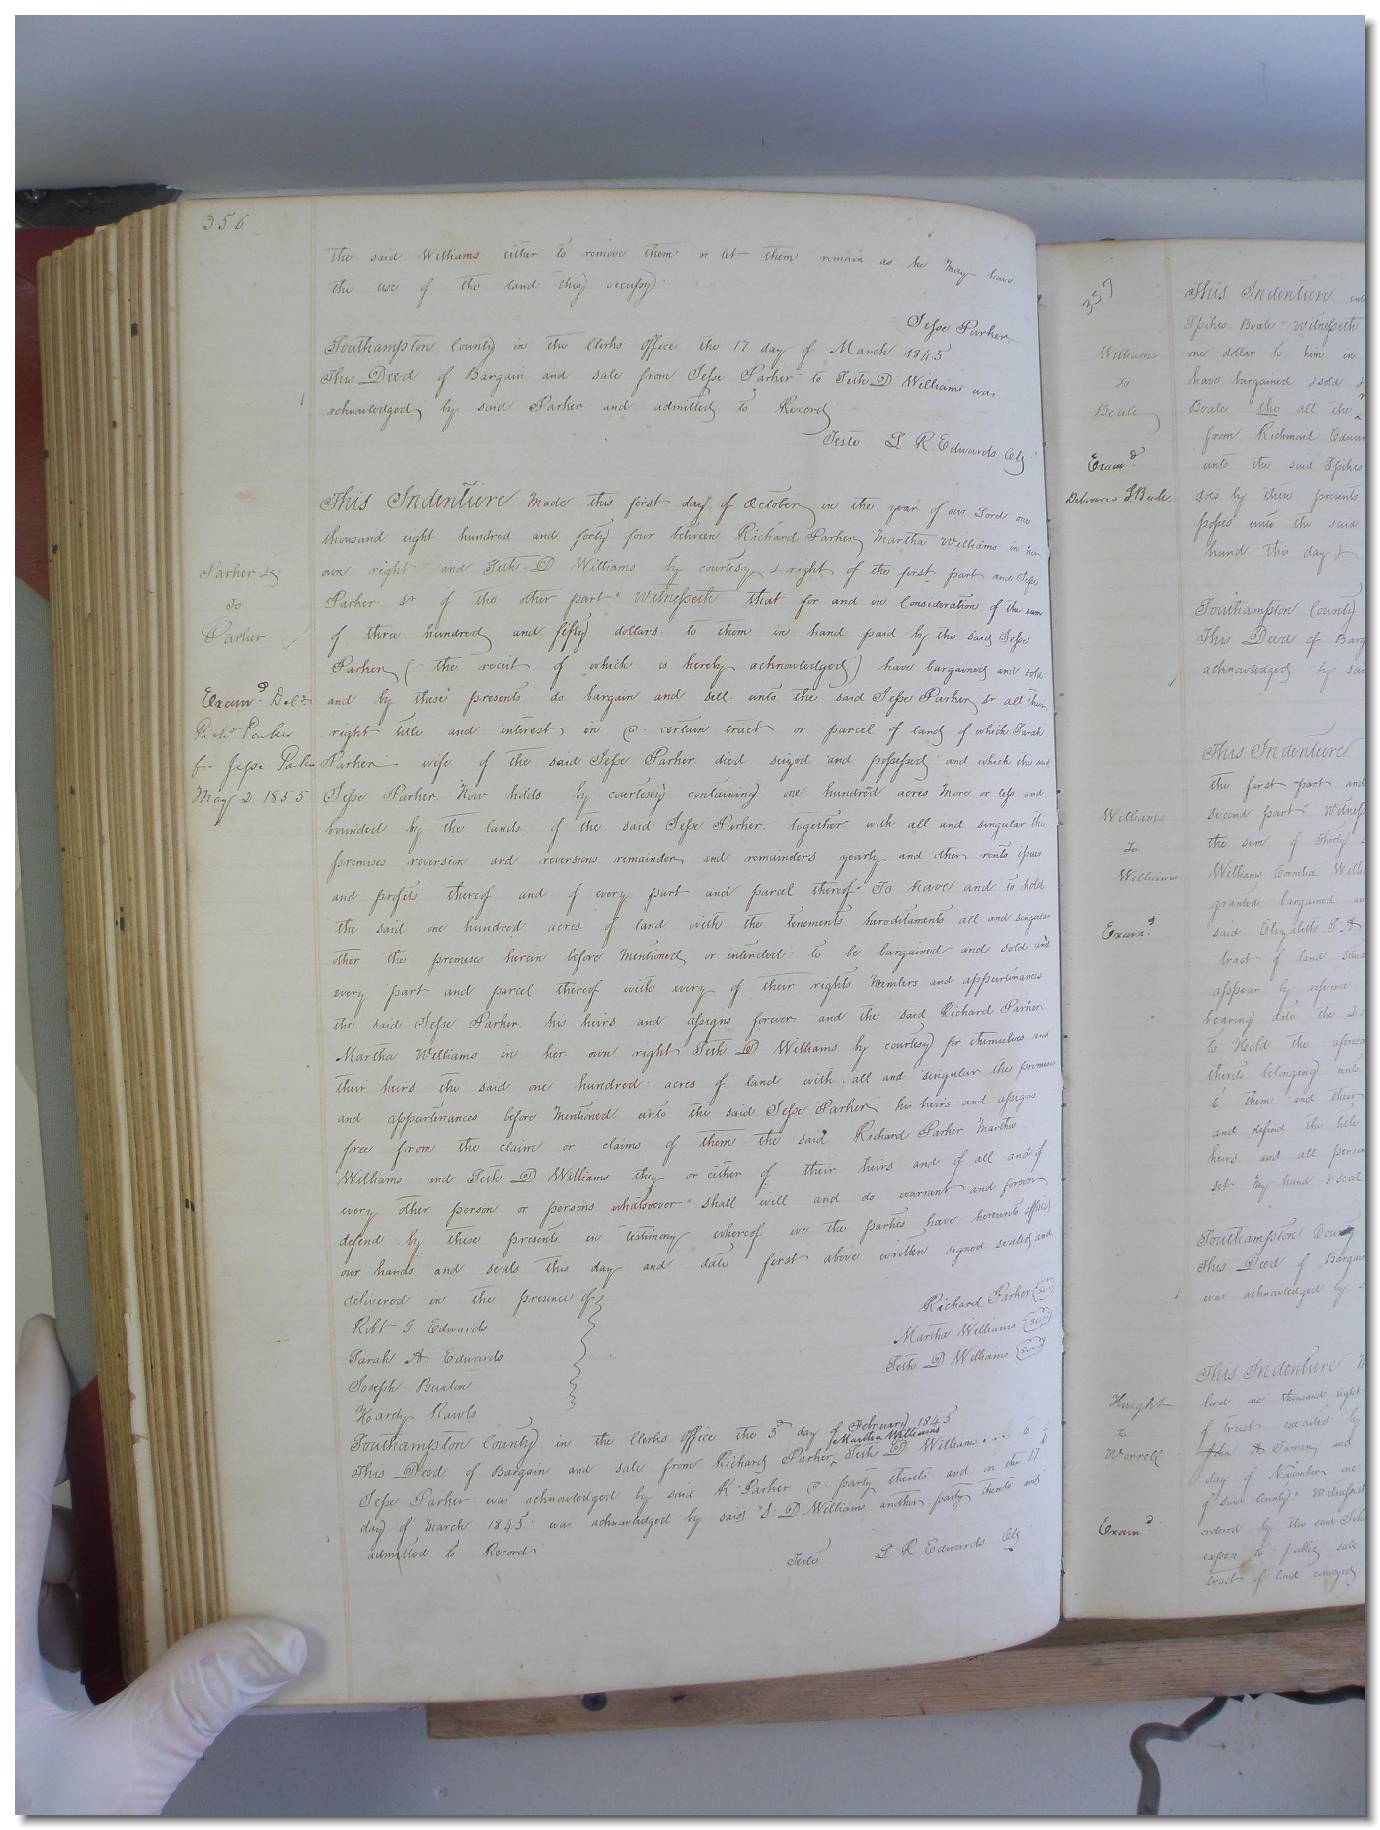 356
the said Williams either to remove them or let them remain as he may have
the use of the land they occupy
Jesse Parker
Southampton County in the Clerks office the 17 day of March 1845
This Deed of Bargain and sale from Jesse Parker to Seth D Williams was
acknowledged by said Parker and admitted to Record
Teste L R Edwards Clk
Parker &c
To
Parker
Exam.d Del.d
Rich.d Parker
for Jesse Parker
May 2 1855
This Indenture made this first day of October in the year of our Lord one
thousand eight hundred and forty four between Richard Parker Martha Williams in her
own right and Seth D Williams by courtesy & right of the first part and Jesse
Parker Sr of the other part Witnesseth that for and in consideration of the sum
of three hundred and fifty dollars to them in hand paid by the said Jesse
Parker (the receit of which is hereby acknowledged) have bargained and sold
and by these presents do bargain and sell unto the said Jesse Parker Sr all their
right title and interest in a certain tract or parcel of land of which Sarah
Parker wife of the said Jesse Parker died seized and possessed and which the said
Jesse Parker Now holds by courtesey containing one hundred acres more or less and
bounded by the lands of the said Jesse Parker together with all and singular the
premises reversion and reversions remainder and remainders yearly and other rents issues
and profits thereof and of every part and parcel thereof To have and to hold
the said one hundred acres of land with the tenements hereditaments all and singular
other the premises herein before mentioned or intended to be bargained and sold and
every part and parcel thereof with every of their rights members and appurtenances
the said Jesse Parker his heirs and assigns forever and the said Richard Parker
Martha Williams in her own right Seth D Williams by courtesy for themselves and
their heirs the said one hundred acres of land with all and singular the premises
and appurtenances before mentioned unto the said Jesse Parker his heirs and assigns
free from the claim or claims of them the said Richard Parker Martha
Williams and Seth D Williams they or either of their heirs and of all and of
every other person or persons whatsoever shall will and do warrant and forever
defend by these presents in testimony whereof we the parties have hereunto affixed
our hands and seals this day and date first above written signed sealed and
delivered in the presence of
Robt G Edwards
Sarah A Edwards
Joseph Buxton
Hardy Rawls
Richard Parker
Martha Williams
Seth D Williams
Southampton County in the Clerks Office the 3d day of February 1845
This Deed of Bargain and sale from Richard Parker Martha Williams Seth D Williams to
Jesse Parker was acknowledged by said R Parker a party thereto and on the 17
day of March 1845 was acknowledged by said S D Williams another party thereto and
admitted to Record
Teste L R Edwards Clk
357
Williams
To
Beale
Exam.d
Delivered S Beale
This Indenture
Spikes Beale Witnesseth
one dollar to him in
have bargained & sold
Beale the all the
from Richmond
unto the said Spikes
does by these presents
unto the said
hand this day &
Southampton County
This Deed of
acknowledged by
Williams
To
Williams
Exam.d
This Indenture
the first part and
second part
the sum of Thirty
Williams Cornelia
granted bargained
said Elizabeth S A
tract of land
appear by reference
bearing date the
to Hold the
thereto belonging unto
to them and their
and defend the title
heirs and all
set my hand & seal
Southampton County
This Deed of
was acknowledged by
Knight
to
Worrell
Exam.d
This Indenture
Lord one thousand eight
of trust executed by
day of November one
of said County
ordered by the said
expose to public sale
tract of land conveyed